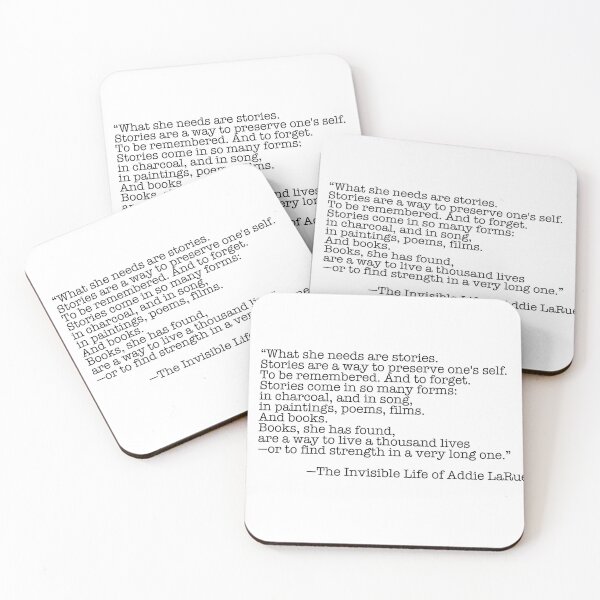 “What she needs are stories.
Stories are a way to preserve one's self.
To be remembered. And to forget.
Stories come in so many forms:
in charcoal, and in song,
in paintings,
And books.
Books, she has
lives
very long
“What she needs are stories.
Stories are a way to preserve one's self.
To be remembered. And to forget.
Stories come in so many forms:
in charcoal, and in song,
in paintings, poems, films.
And books.
Books, she has found,
are a way to live a thousand lives
—or to find strength in a very long one.”
—The Invisible Life of Addie LaRue
“What she needs are stories.
Stories are a way to preserve one's self.
To be remembered. And to forget.
Stories come in so many forms:
in charcoal, and in song,
in paintings, poems, films.
And books.
Books, she has found,
are a way to live a thousand
—or to find strength in a very
—The Invisible Life of
“What she needs are stories.
Stories are a way to preserve one's self.
To be remembered. And to forget.
Stories come in so many forms:
in charcoal, and in song,
in paintings, poems, films.
And books.
Books, she has found,
are a way to live a thousand lives
—or to find strength in a very long one.”
—The Invisible Life of Addie LaRue